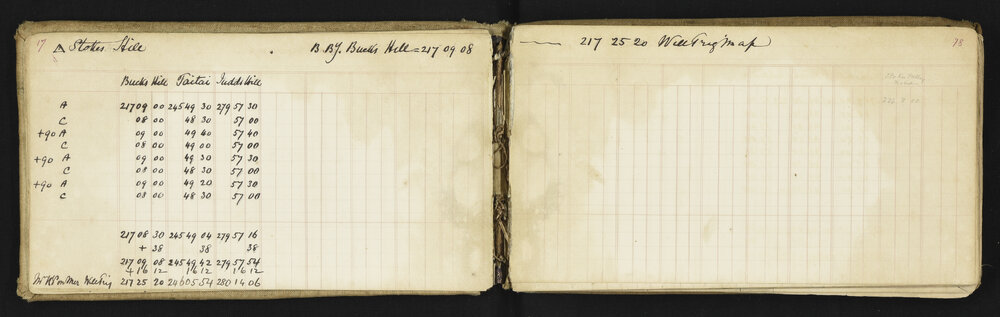 17 △ Stokes Hill B By. Bucks Hill = 217 09 08
Bucks Hill Taitai Judds Hill
A 217 09 00 245 49 30 279 57 30
C 08 00 48 30 57 00
+90 A 09 00 49 40 57 40
C 08 00 49 00 57 00
+90 A 09 00 49 30 57 30
C 08 00 48 30 57 00
+90 A 09 00 49 20 57 30
C 08 00 48 30 57 00
217 08 30 245 49 04 279 57 16
+ 38 38 38
217 09 08 245 49 42 279 57 54
+16 12 16 12 16 12
Mer Well Trig 217 25 20 246 05 54 280 14 06
217 25 20 Well Trig Map 18